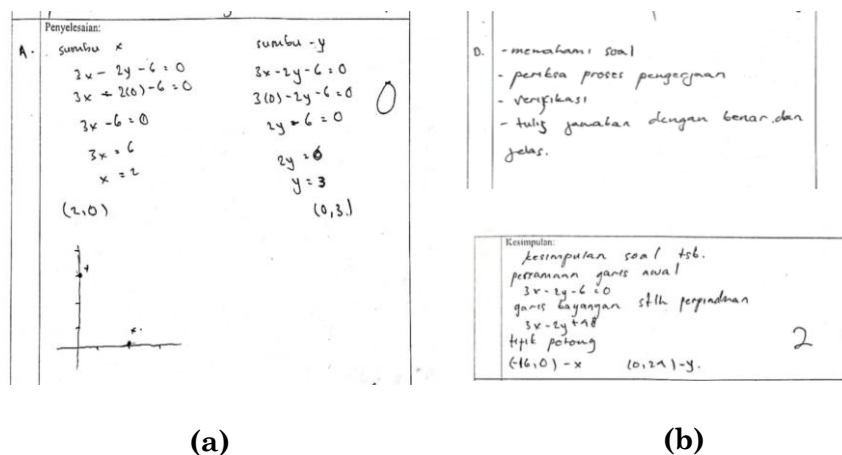 Penyelesaian:
A. sumbu x
3x - 2y - 6 = 0
3x - 2(0) - 6 = 0
3x - 6 = 0
3x = 6
x = 2
(2,0)
sumbu -y
3x - 2y - 6 = 0
3(0) - 2y - 6 = 0
2y - 6 = 0
2y = 6
y = 3
(0,3)
0
y
x
(a)
D. - memahami soal
- periksa proses pengerjaan
- verifikasi
- tulis jawaban dengan benar dan
jelas.
Kesimpulan:
kesimpulan soal tsb.
persamaan garis awal
3x - 2y - 6 = 0
garis bayangan stlh perpindahan
3x - 2y + 48
titik potong
(-16,0) - x (0,24) - y.
2
(b)